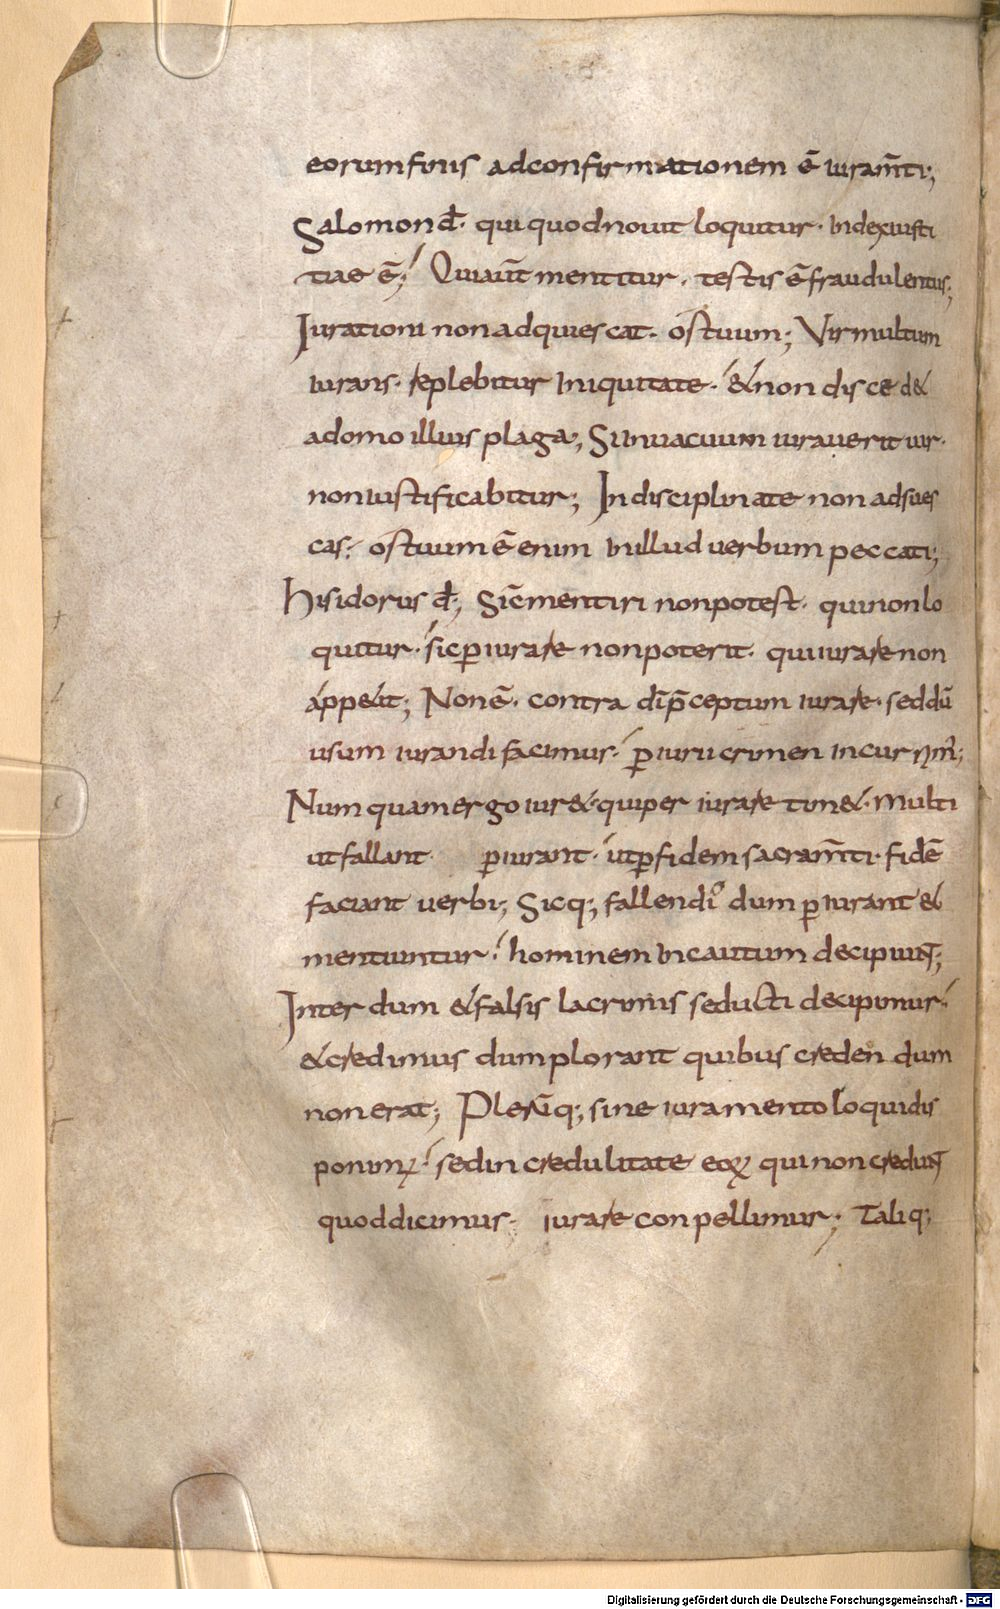 eorum finis ad confirmationem ē iuram̄ti;
Salomon đ. qui quod nouit loquitur. index iusti
tiae ē; Qui aūt mentitur. testis ē fraudulentus;
Iurationi non adquiescat. os tuum; Vir multum
iurans. replebitur iniquitate. & non discedet
a domo illius plaga; Si in uacuum iurauerit uir.
non iustificabitur; Indisciplinate non adsues
cas. os tuum ē enim in illud uerbum peccati;
Hisidorus đ; Sic̄ mentiri non potest. qui non lo
quitur. sic ꝑiurare non poterit. qui iurare non
app&it; Non ē. contra dī p̄ceptum iurare. sed dū
usum iurandi facimus. ꝑiurii crimen incurrim̄;
Numquam ergo iur&. qui periurare tim&. Multi
ut fallant ꝑiurant. ut ꝑ fidem sacram̄ti. fidē
faciant uerbi; Sicq; fallendo dum ꝑiurant &
mentiuntur. hominem incautum decipiunt;
Interdum & falsis lacrimis seducti decipimur.
& credimus dum plorant quibus credendum
non erat; Plerūq; sine iuramento loqui dis
ponimꝰ. sed in credulitate eoꝝ qui non credunt
quod dicimus. iurare conpellimur; Taliq;
Digitalisierung gefördert durch die Deutsche Forschungsgemeinschaft - DFG